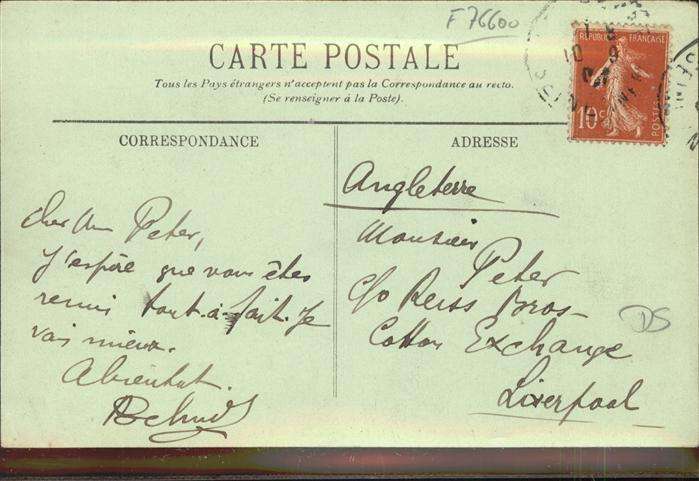 F 76600
CARTE POSTALE
Tous les Pays étrangers n'acceptent pas la Correspondance au recto.
(Se renseigner à la Poste).
REPUBLIQUE FRANÇAISE
10c
POSTES
CORRESPONDANCE
Cher Peter,
J'espère que vous êtes
remis tout-à-fait. Je
vais mieux.
A bientôt.
ADRESSE
Angleterre
Monsieur
Peter
c/o Reiss Bros-
Cotton Exchange
Liverpool
DS